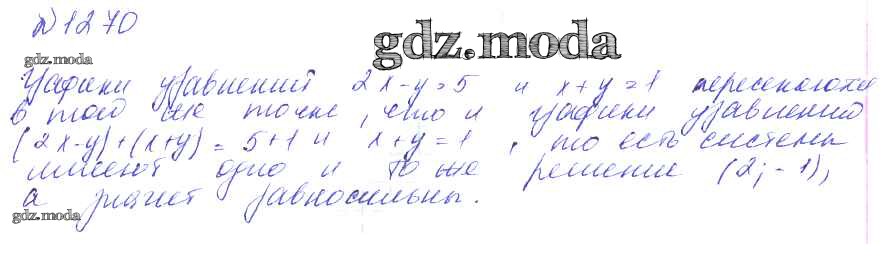 №1270
gdz.moda
gdz.moda
Графики уравнений 2x-y=5 и x+y=1 пересекаются
в той же точке, что и графики уравнений
(2x-y)+(x+y)=5+1 и x+y=1, то есть системы
имеют одно и то же решение (2;-1),
а значит равносильны.
gdz.moda